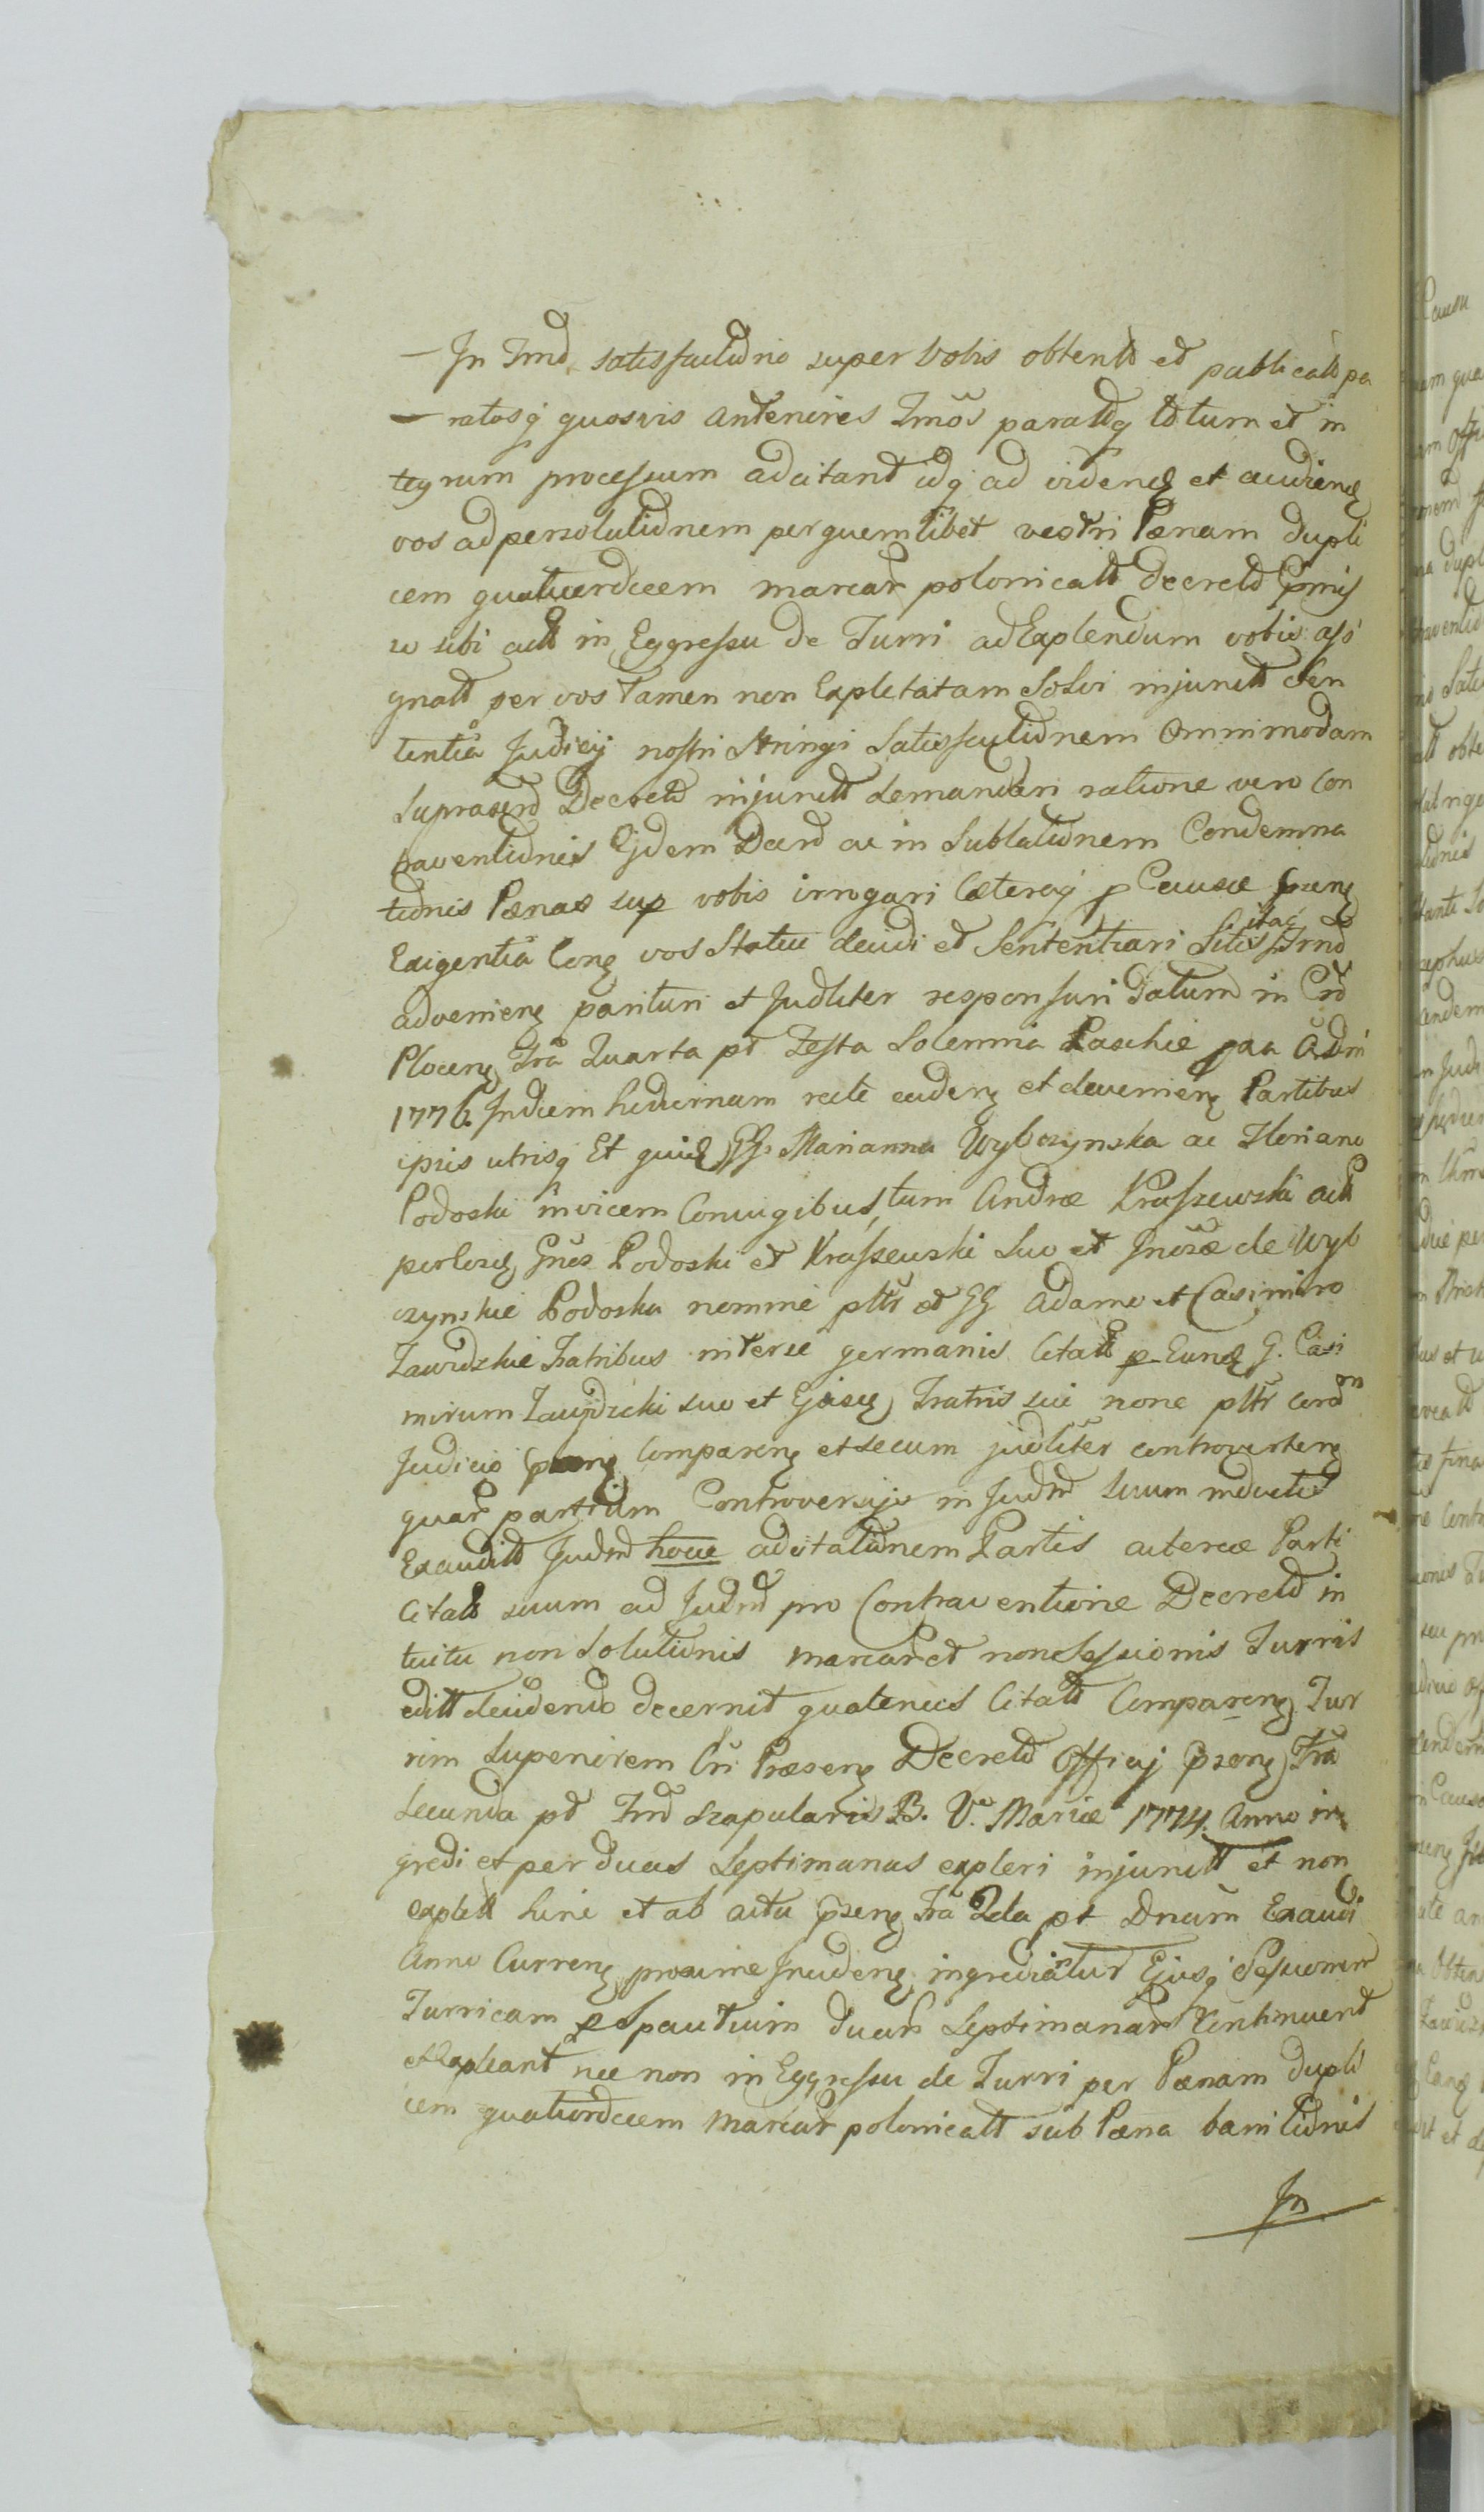 In Trnõ satisfactione super Vobis obtentt et publicatt pa
ratosq quosvis anteriores Trnõs parattq totum et in
tegrum processum adcitant idq ad vidend et audiend
vos ad persolutionem per quemlibet vestri Pænam dupli
cem quatuordecem marcar polonicatt Decreto
sibi actt in Eggressu de Turri ad Explendum vobis assi
gnatt per vos tamen non Expletatam Solvi injunctt Sen
tentia Judicij nostri Stringi Satisfactionem Omnimodam
Suprascrõ Decreto injunctt demandari ratione vero Con
traventionis Ejdem Decrõ ac in Sublationem Condemna
tionis Pænas sup vobis irrogari Cæteraq p Causæ
Exigentia Cong vos Statui decidi et Sententiari Sitis itaq Trnõ
advenieng parituri et Judliter responsuri Datum in Crõ
Ploceng Fra Quarta pt Festa Solemnia Paschæ paa A Dni
1776. In diem hodiernam recte cadeng et devenieng Partibus
ipsis utrisq Et quid GG. Marianna Wyboszynska ac Floriano
Podoski invicem Conjugibus, tum Andræ Kraszewski actt
per Podoski et Kraszewski Suo et de Wyb
szynskie Podoska nomine pttr et GG Adamo et Casimiro
Zawidzkie Fratribus inter se germanis Citatt p Eund G. Casi
mirum Zawidzki suo et Ejusd Fratris sui none pttr corõm
Judicio Compareng et secum judliter controverteng
quar partium Controversijs in Judm Suum inductis
Exauditt Judm hocce ad citationem Partis actoreæ Parti
Citatt suum ad Judm pro Contraventione Decreto in
tuitu non Solutionis marcar et non Sessionis Turris
editt decidendo decernit quatenus Citatt Compareng Tur
rim Superiorem Cri Præseng Decreto Officij pseng Fra
Secunda pt Fest Scapularis B. V. Mariæ 1774. Anno in
gredi et per duas Septimanas expleri injunctt et non
explett hinc et ab actu pseng Fra 2da pt Dnam Exaudi
Anno Curreng proxime Incideng ingrediantur Ejusq Sessionem
Turricam p Spatium duar Septimanar Continuent
et Expleant nec non in Eggressu de Turri per Pænam dupli
cem quatuordecem marcar polonicatt sub Pæna banitionis
In